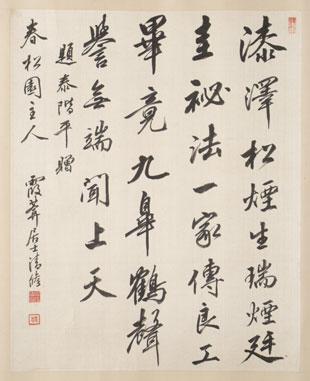 漆澤松煙生瑞煙廷
圭祕法一家傳良工
畢竟九皐鶴聲
譽無端聞上天
題泰階平贈
春松園主人
霞莾居士清陸